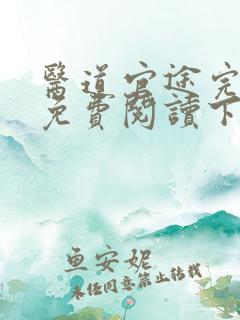 醫道官途完
免費閱讀下
鱼安妮
未经同意禁止转载